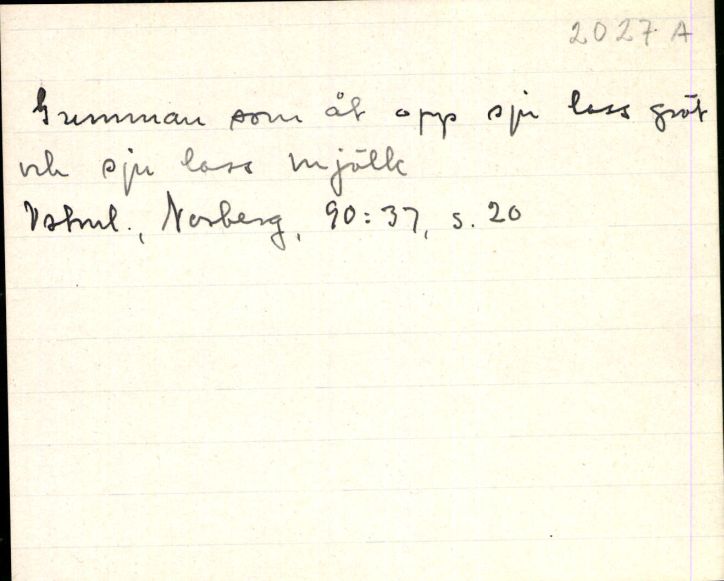 2027 A
Gumman som åt opp sju lass gröt
och sju lass mjölk
Vstml., Norberg, 90:37, s. 20